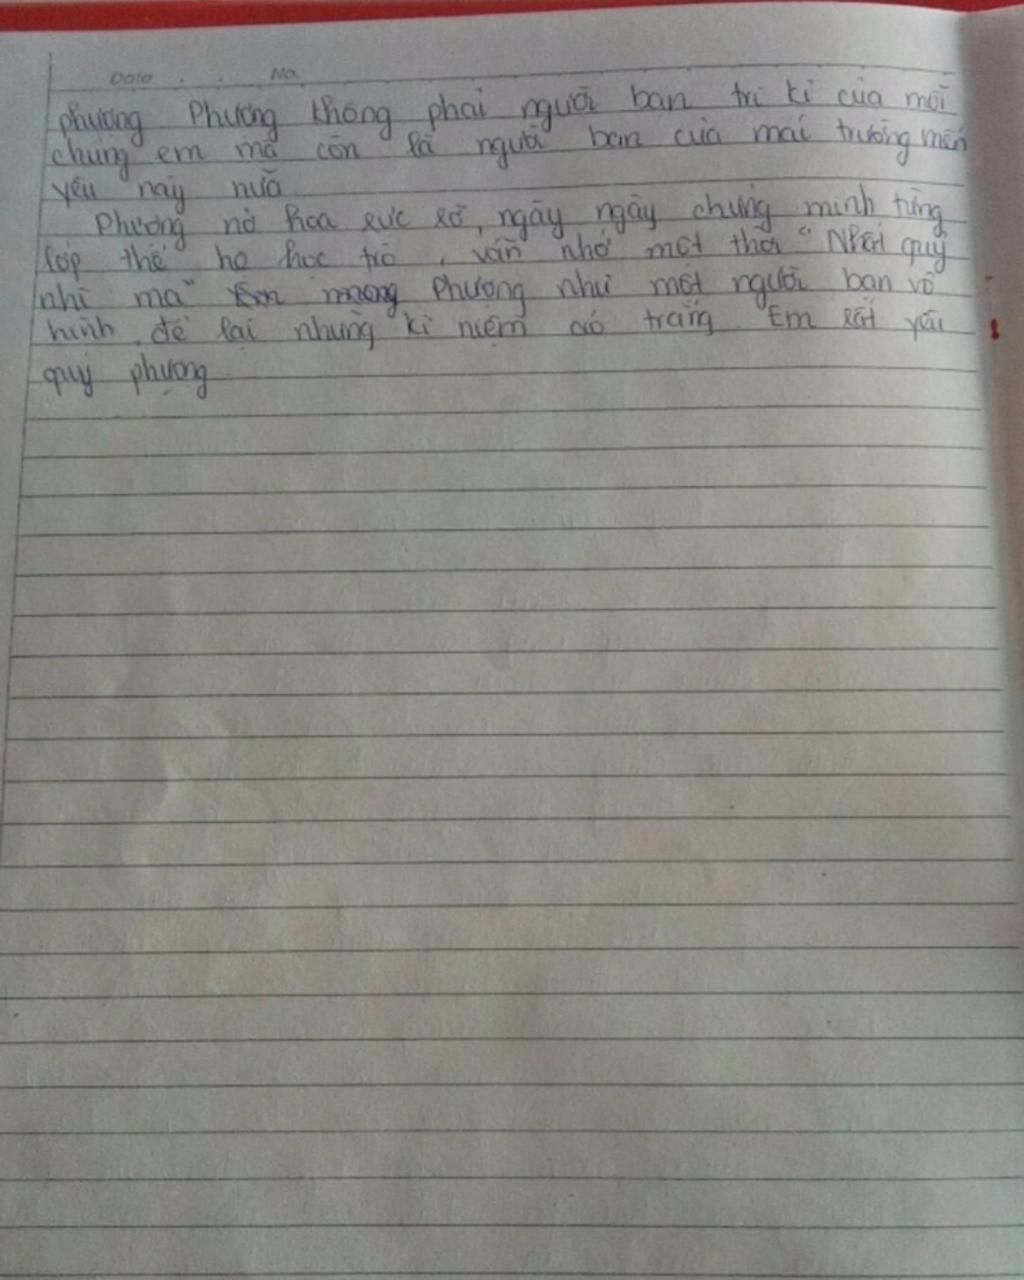 Date . . No.
phượng Phượng không phải người bạn tri kỉ của mỗi
chúng em mà còn là người bạn của mái trường mến
yêu này nữa
Phượng nở hoa rực rỡ, ngày ngày chứng minh từng
lớp thế hệ học trò, vẫn nhớ một thời "Nhất quỷ
nhì ma" mong Phượng như một người bạn vô
hình, để lại những kỉ niệm áo trắng Em rất yêu
quý phượng